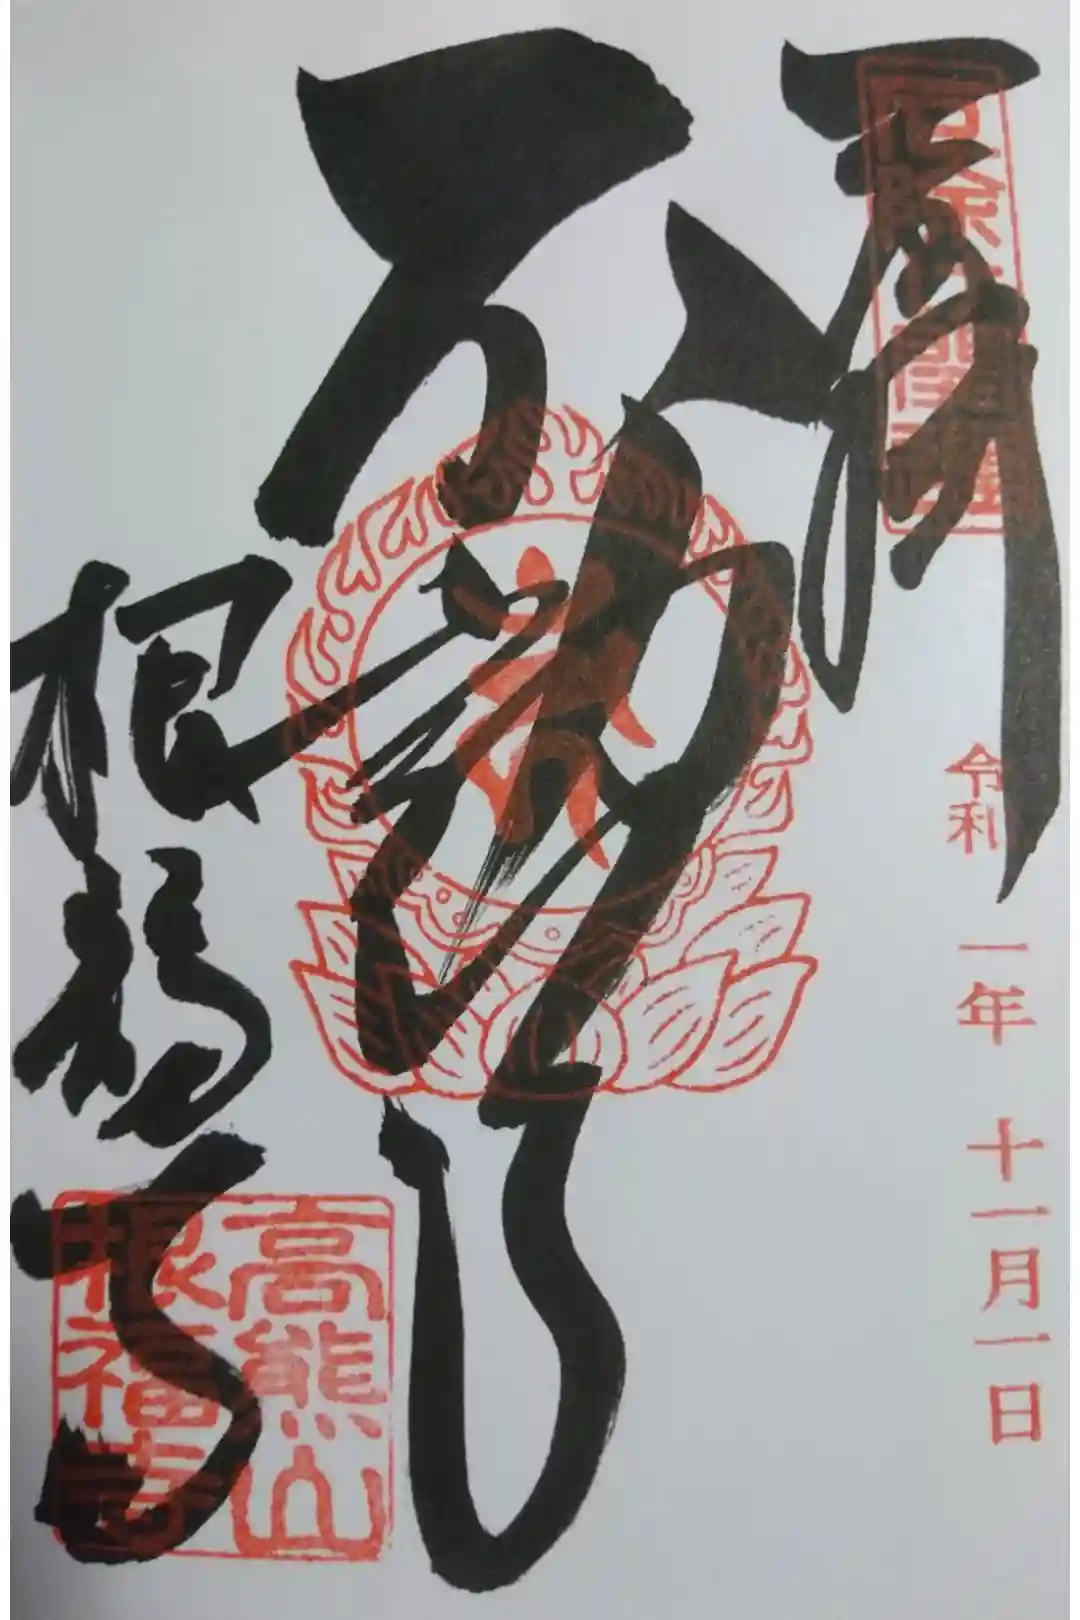 奉拝
厄除開運
令和 一年 十一月一日
不動
根福寺
高熊山
根福寺